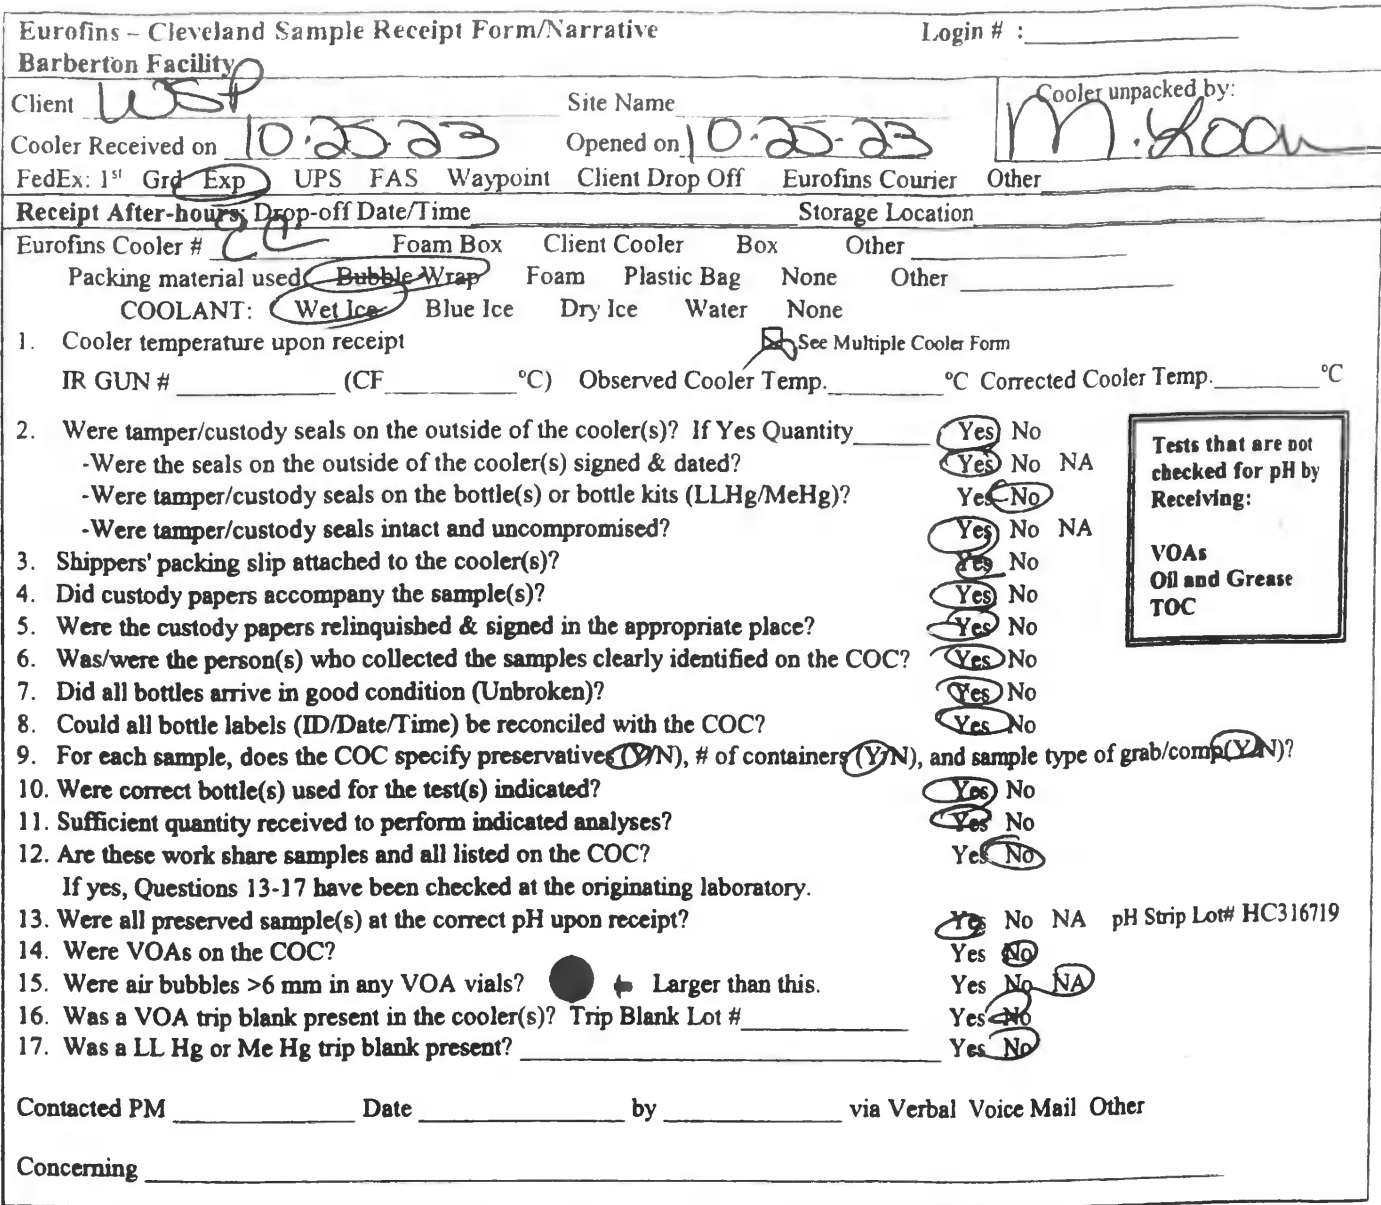 Eurofins – Cleveland Sample Receipt Form/Narrative Login # :
Barberton Facility
Client WSP Site Name Cooler unpacked by:
Cooler Received on 10.25.23 Opened on 10-25-23 M.
FedEx: 1st Grd Exp UPS FAS Waypoint Client Drop Off Eurofins Courier Other
Receipt After-hours: Drop-off Date/Time Storage Location
Eurofins Cooler # Foam Box Client Cooler Box Other
Packing material used: Bubble Wrap Foam Plastic Bag None Other
COOLANT: Wet Ice Blue Ice Dry Ice Water None
1. Cooler temperature upon receipt See Multiple Cooler Form
IR GUN # (CF °C) Observed Cooler Temp. °C Corrected Cooler Temp. °C
2. Were tamper/custody seals on the outside of the cooler(s)? If Yes Quantity Yes No
-Were the seals on the outside of the cooler(s) signed & dated? Yes No NA
-Were tamper/custody seals on the bottle(s) or bottle kits (LLHg/MeHg)? Yes No
-Were tamper/custody seals intact and uncompromised? Yes No NA
3. Shippers' packing slip attached to the cooler(s)? Yes No
4. Did custody papers accompany the sample(s)? Yes No
5. Were the custody papers relinquished & signed in the appropriate place? Yes No
6. Was/were the person(s) who collected the samples clearly identified on the COC? Yes No
7. Did all bottles arrive in good condition (Unbroken)? Yes No
8. Could all bottle labels (ID/Date/Time) be reconciled with the COC? Yes No
Tests that are not
checked for pH by
Receiving:
VOAs
Oil and Grease
TOC
9. For each sample, does the COC specify preservatives (Y/N), # of containers (Y/N), and sample type of grab/comp(Y/N)?
10. Were correct bottle(s) used for the test(s) indicated? Yes No
11. Sufficient quantity received to perform indicated analyses? Yes No
12. Are these work share samples and all listed on the COC? Yes No
If yes, Questions 13-17 have been checked at the originating laboratory.
13. Were all preserved sample(s) at the correct pH upon receipt? Yes No NA pH Strip Lot# HC316719
14. Were VOAs on the COC? Yes No
15. Were air bubbles >6 mm in any VOA vials? Larger than this. Yes No NA
16. Was a VOA trip blank present in the cooler(s)? Trip Blank Lot # Yes No
17. Was a LL Hg or Me Hg trip blank present? Yes No
Contacted PM Date by via Verbal Voice Mail Other
Concerning